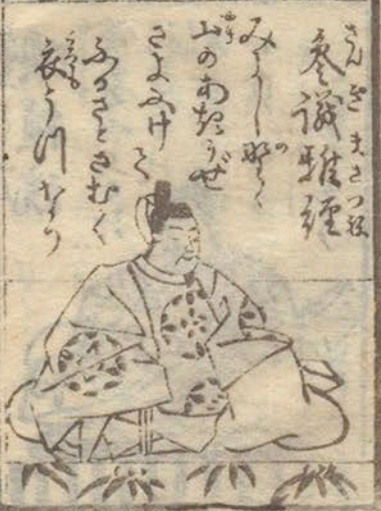 さんぎまさつね
参議雅経
みよし野の
山のあきかぜ
さよふけて
ふるさとさむく
衣うつなり